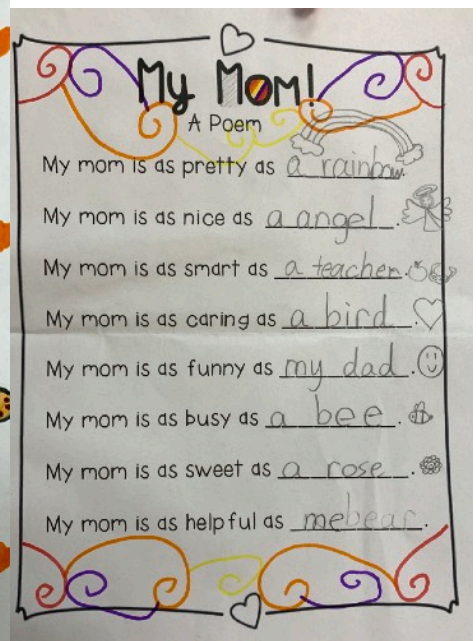 My Mom!
A Poem
My mom is as pretty as a rainbow.
My mom is as nice as a angel.
My mom is as smart as a teacher.
My mom is as caring as a bird.
My mom is as funny as my dad.
My mom is as busy as a bee.
My mom is as sweet as a rose.
My mom is as helpful as me.